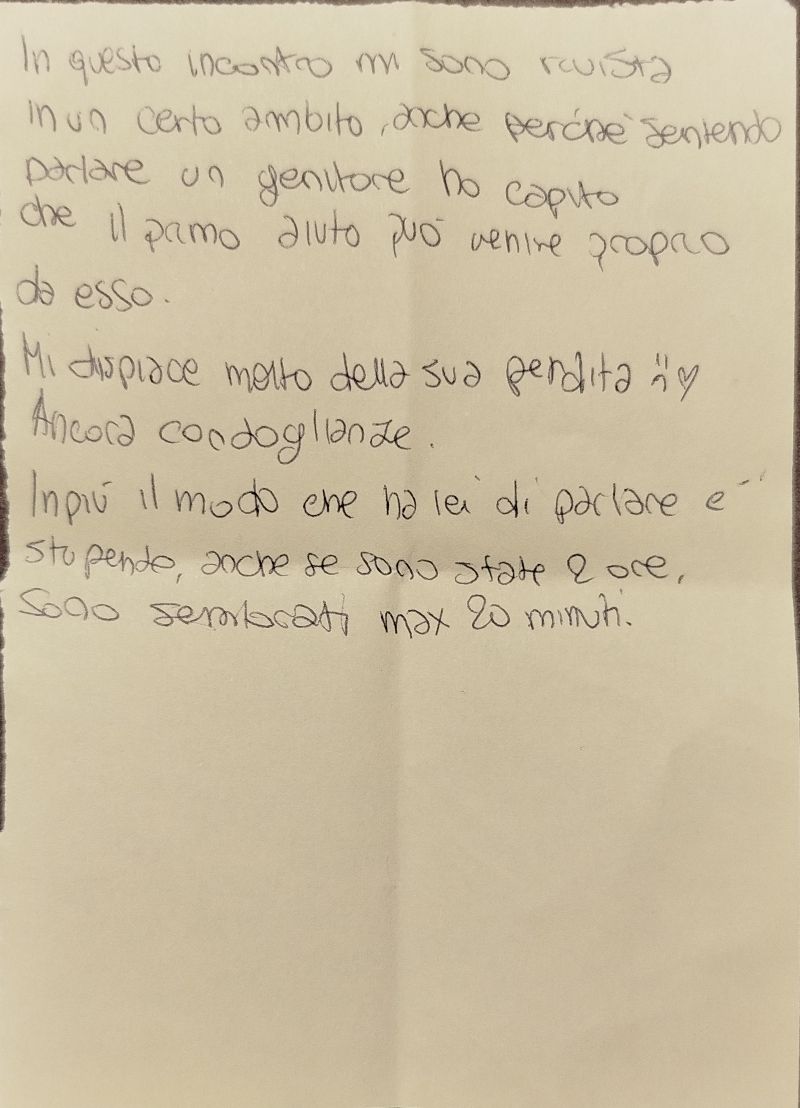 In questo incontro mi sono rivista
in un certo ambito, anche perché sentendo
parlare un genitore ho capito
che il primo aiuto può venire proprio
da esso.
Mi dispiace molto della sua perdita :( ♡
Ancora condoglianze.
In più il modo che ha lei di parlare è
stupendo, anche se sono state 2 ore,
sono sembrati max 20 minuti.